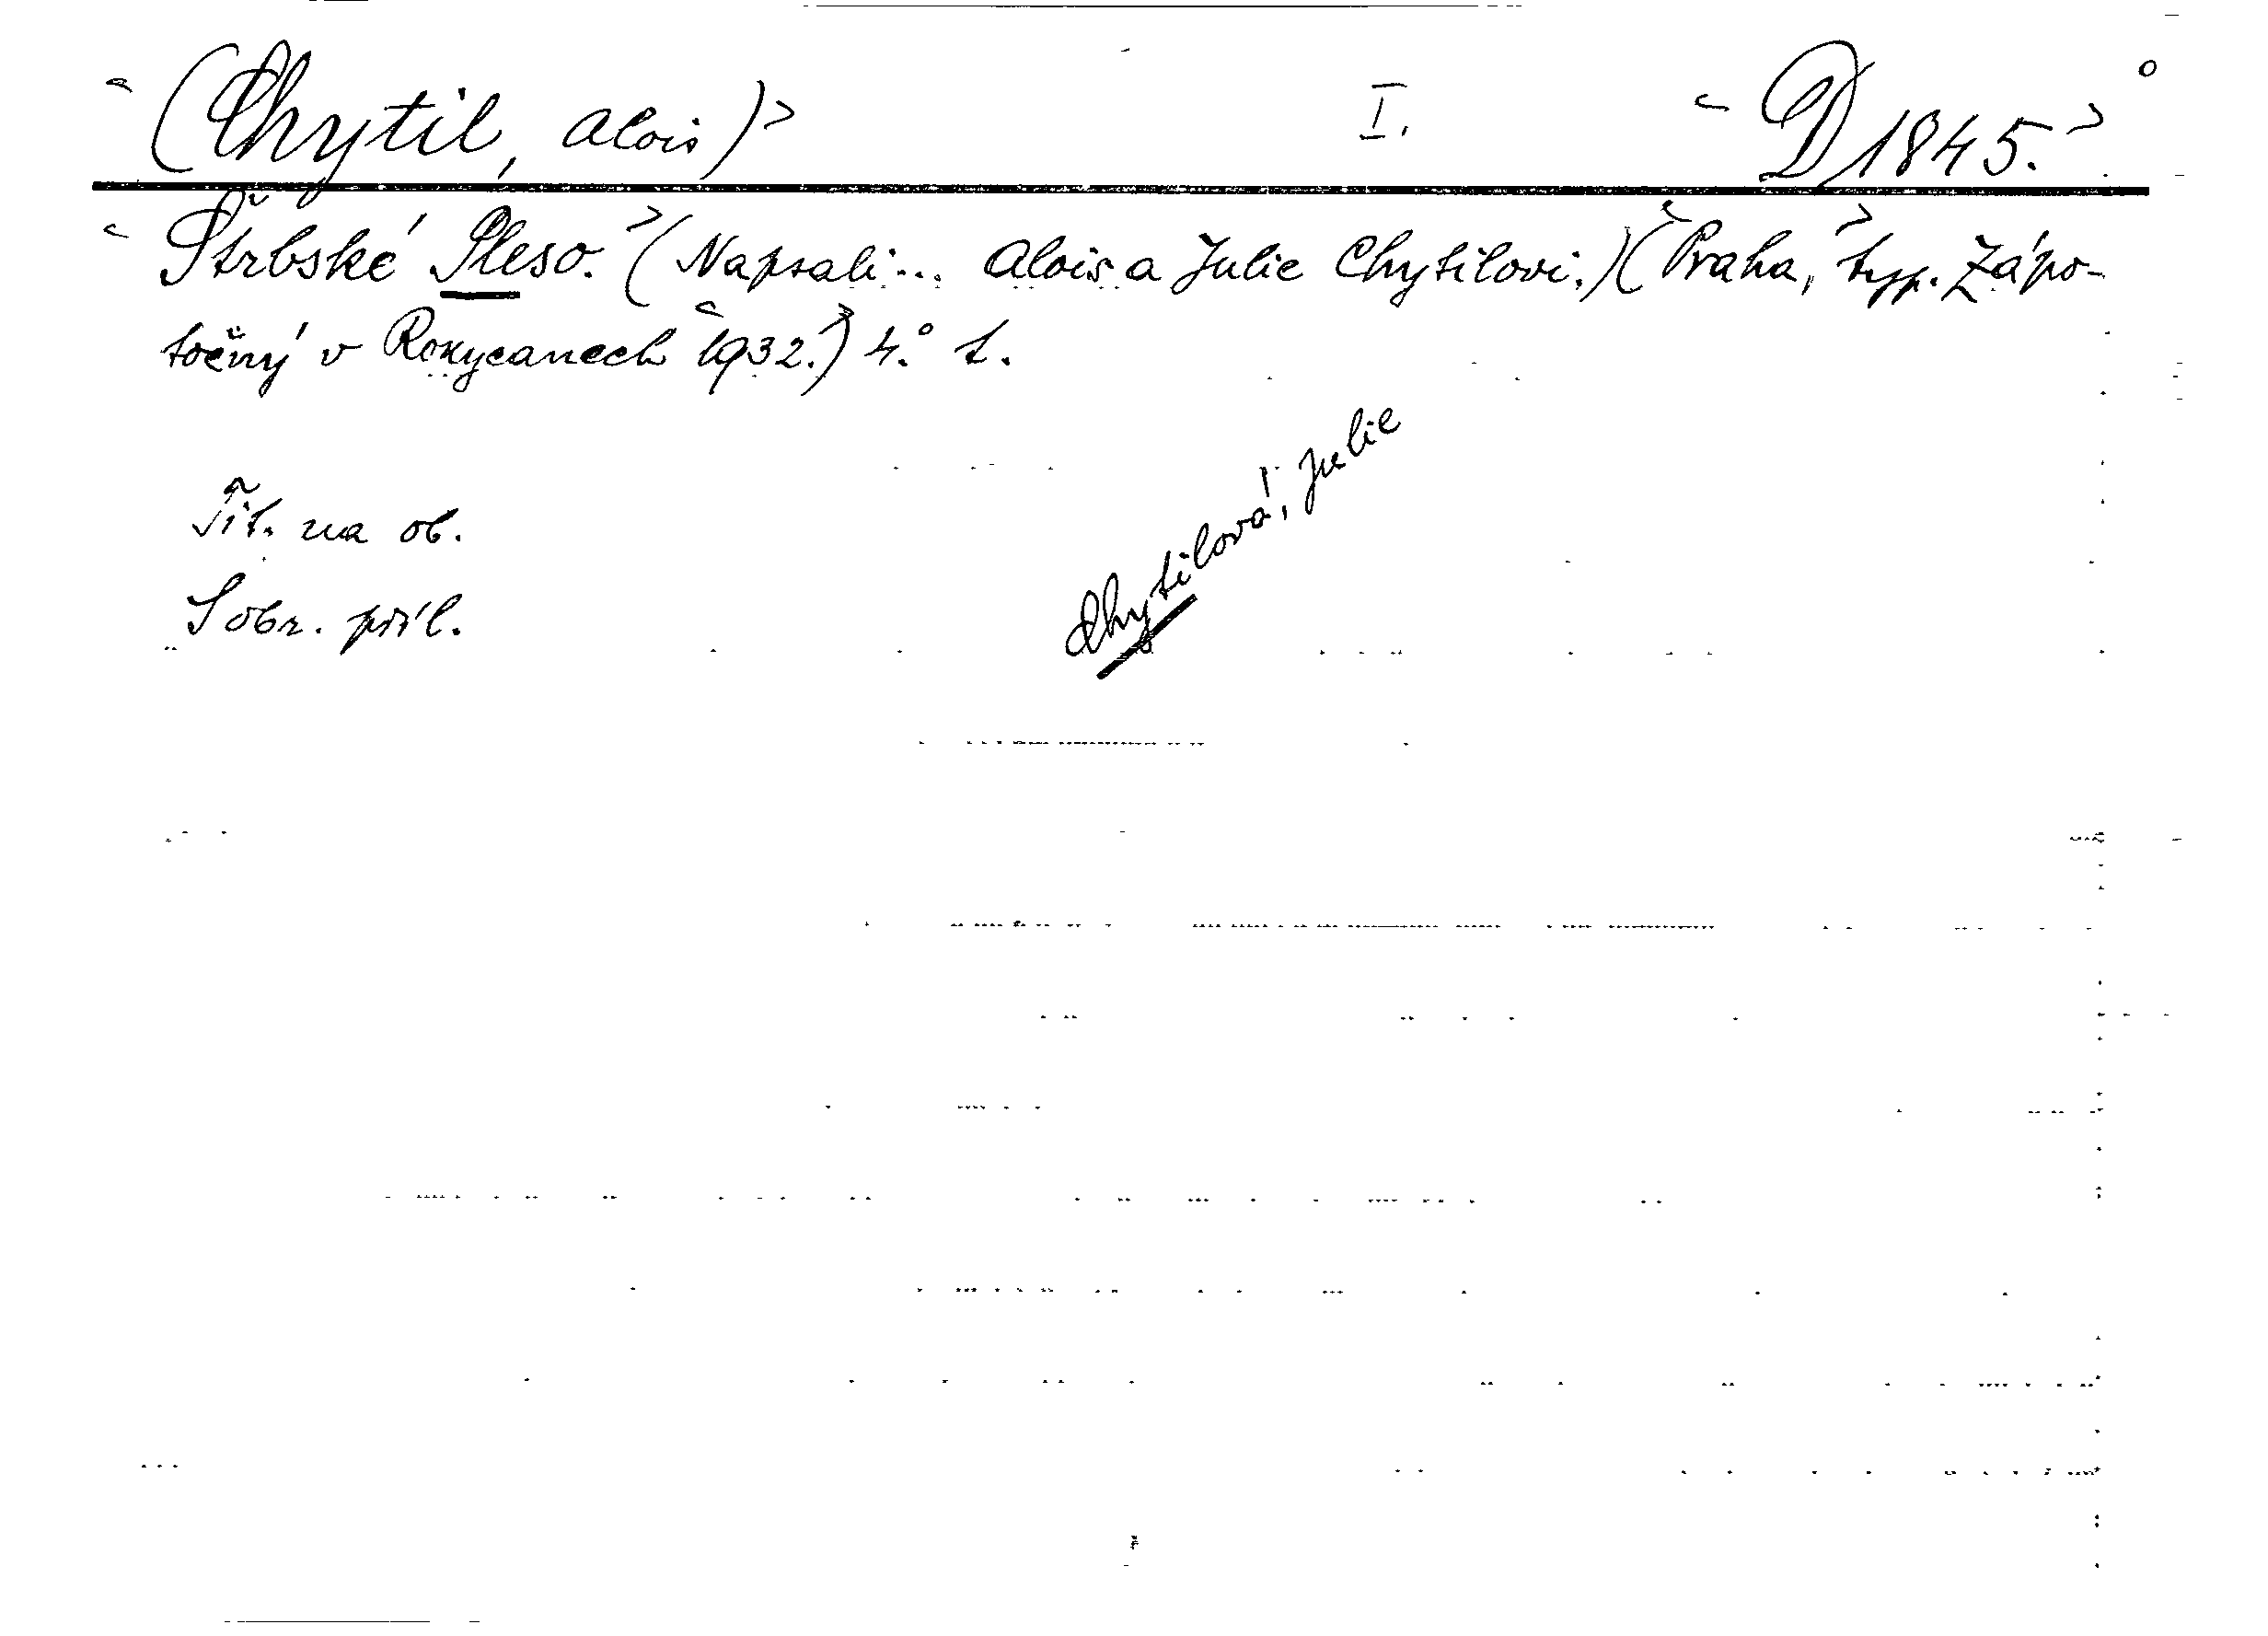 (Chytil, Alois) I. D 1845.
Štrbské Pleso. (Napsali... Alois a Julie Chytilovi.) (Praha, typ. Zápo-
točný v Rokycanech 1932.) 4.° 1.
Tit. na ob.
S obr. příl.
Chytilová, Julie